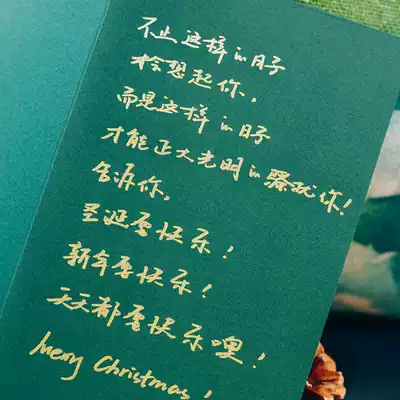 不止这样的日子
才会想起你，
而是这样的日子
才能正大光明的骚扰你！
告诉你，
圣诞要快乐！
新年要快乐！
天天都要快乐哩！
Merry Christmas！